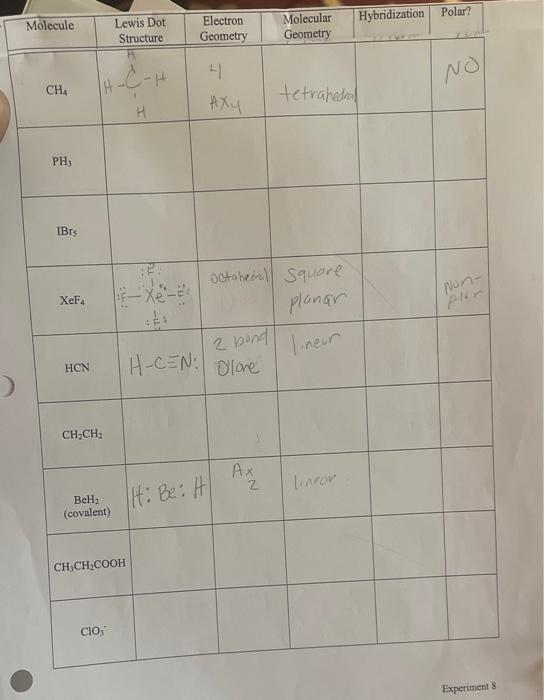 Molecule
Lewis Dot
Structure
Electron
Geometry
Molecular
Geometry
Hybridization
Polar?
CH₄
H
H-C-H
H
4
AX4
tetrahedral
NO
PH₃
IBr₅
XeF₄
:F:
:F-Xe-F:
:F:
octahedral
square
planar
Non-
HCN
H-C≡N:
2 bond
0 lone
linear
CH₂CH₂
BeH₂
(covalent)
H:Be:H
Ax
2
linear
CH₃CH₂COOH
ClO₃⁻
Experiment 8